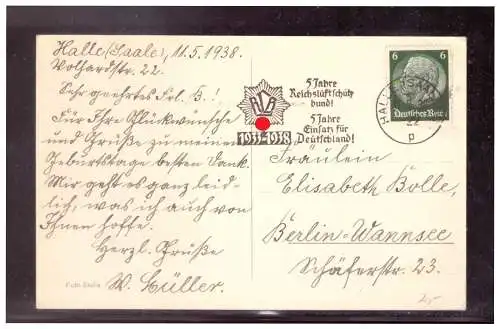 Halle (Saale), 11.5.1938.
Volhardstr. 22.
Sehr geehrtes Frl. B.!
Für Ihre Glückwünsche
und Grüße zu meinem
Geburtstage besten Dank.
Mir geht es ganz leid-
lich, was ich auch von
Ihnen hoffe.
Herzl. Grüße
W. Müller.
5 Jahre
Reichsluftschutz
bund!
5 Jahre
Einsatz für
Deutschland!
RLB
1933-1938
6 6
Deutsches Reich
HALLE
Fräulein
Elisabeth Bolle,
Berlin-Wannsee
Schäferstr. 23.